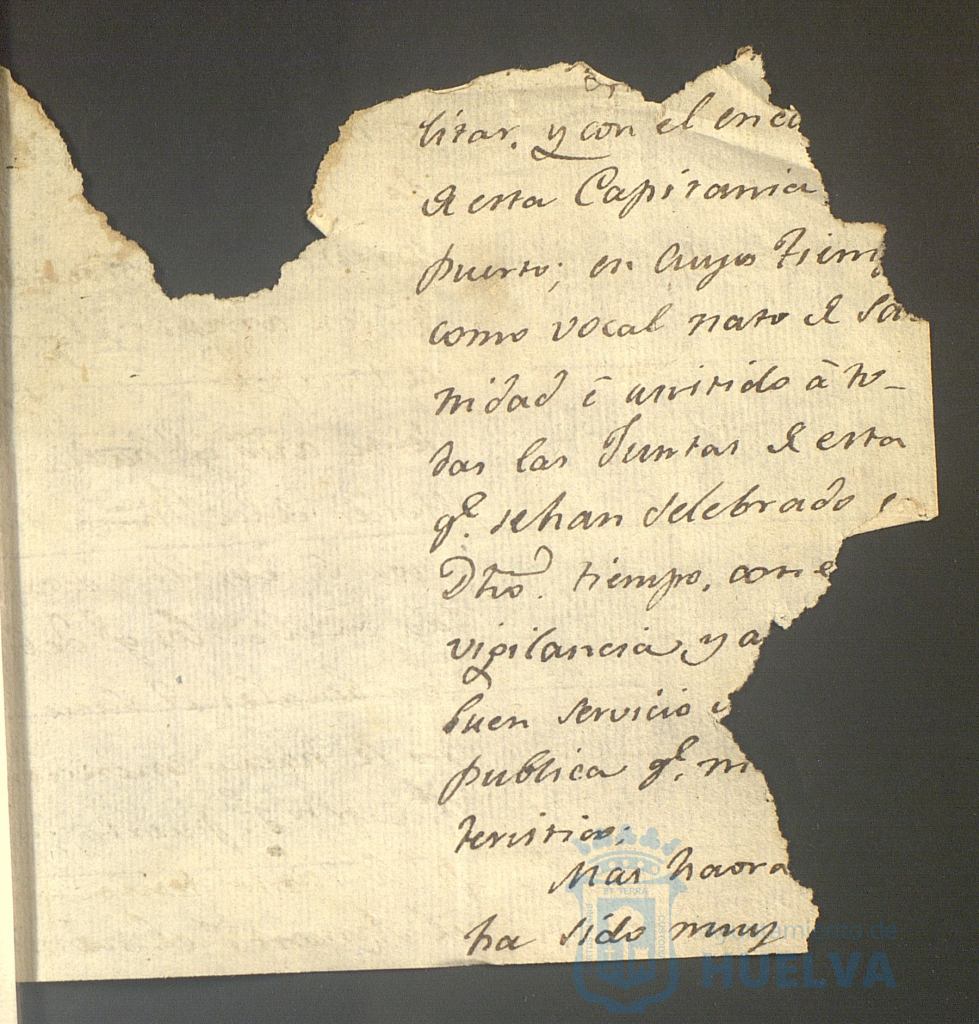 litar, y con el enca
de esta Capitania
puerto; en cuyo tiem
como vocal nato de Sa
nidad é asistido á to-
das las Juntas de esta
qe. se han selebrado e
Dho. tiempo, con e
vigilancia y a
buen servicio
publica qe. m
teristica;
Mas haora
ha sido muy
Ayuntamiento de
HUELVA